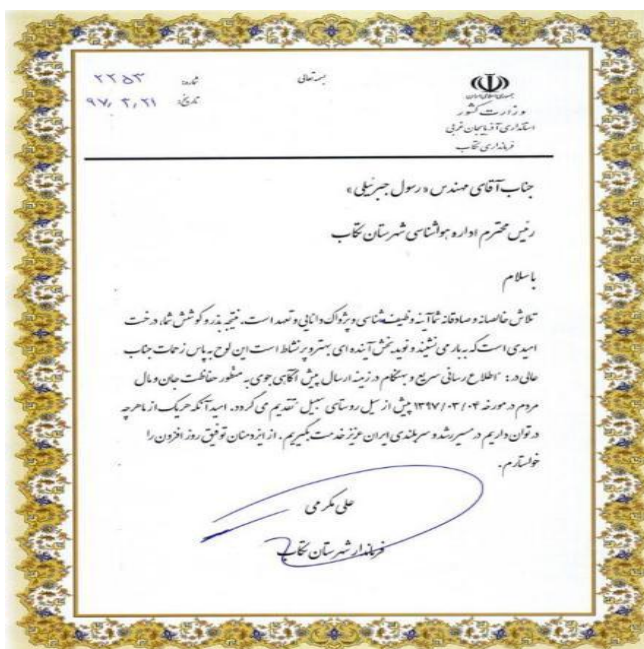 بسمه تعالی
شماره: ۲۲۵۳
تاریخ: ۹۷,۳,۲۱
جمهوری اسلامی ایران
وزارت کشور
استانداری آذربایجان غربی
فرمانداری تکاب
جناب آقای مهندس «رسول جبرئیلی»
رئیس محترم اداره هواشناسی شهرستان تکاب
با سلام
تلاش خالصانه و صادقانه شما آینه وظیفه شناسی و پژواک دانایی و تعهد است. نتیجه بذر و کوشش شما، درخت
امیدی است که به بار می نشیند و نوید بخش آینده ای بهتر و پر نشاط است این لوح به پاس زحمات جناب
عالی در: "اطلاع رسانی سریع و بهنگام در زمینه ارسال پیش آگاهی جوی به منظور حفاظت جان و مال
مردم در مورخه ۱۳۹۷/۰۳/۰۴ پیش از سیل روستای سبیل تقدیم می گردد. امید آنکه هر یک از ما هر چه
در توان داریم در مسیر رشد و سربلندی ایران عزیز خدمت بگیریم. از ایزد منان توفیق روز افزون را
خواستارم.
علی مکرمی
فرماندار شهرستان تکاب